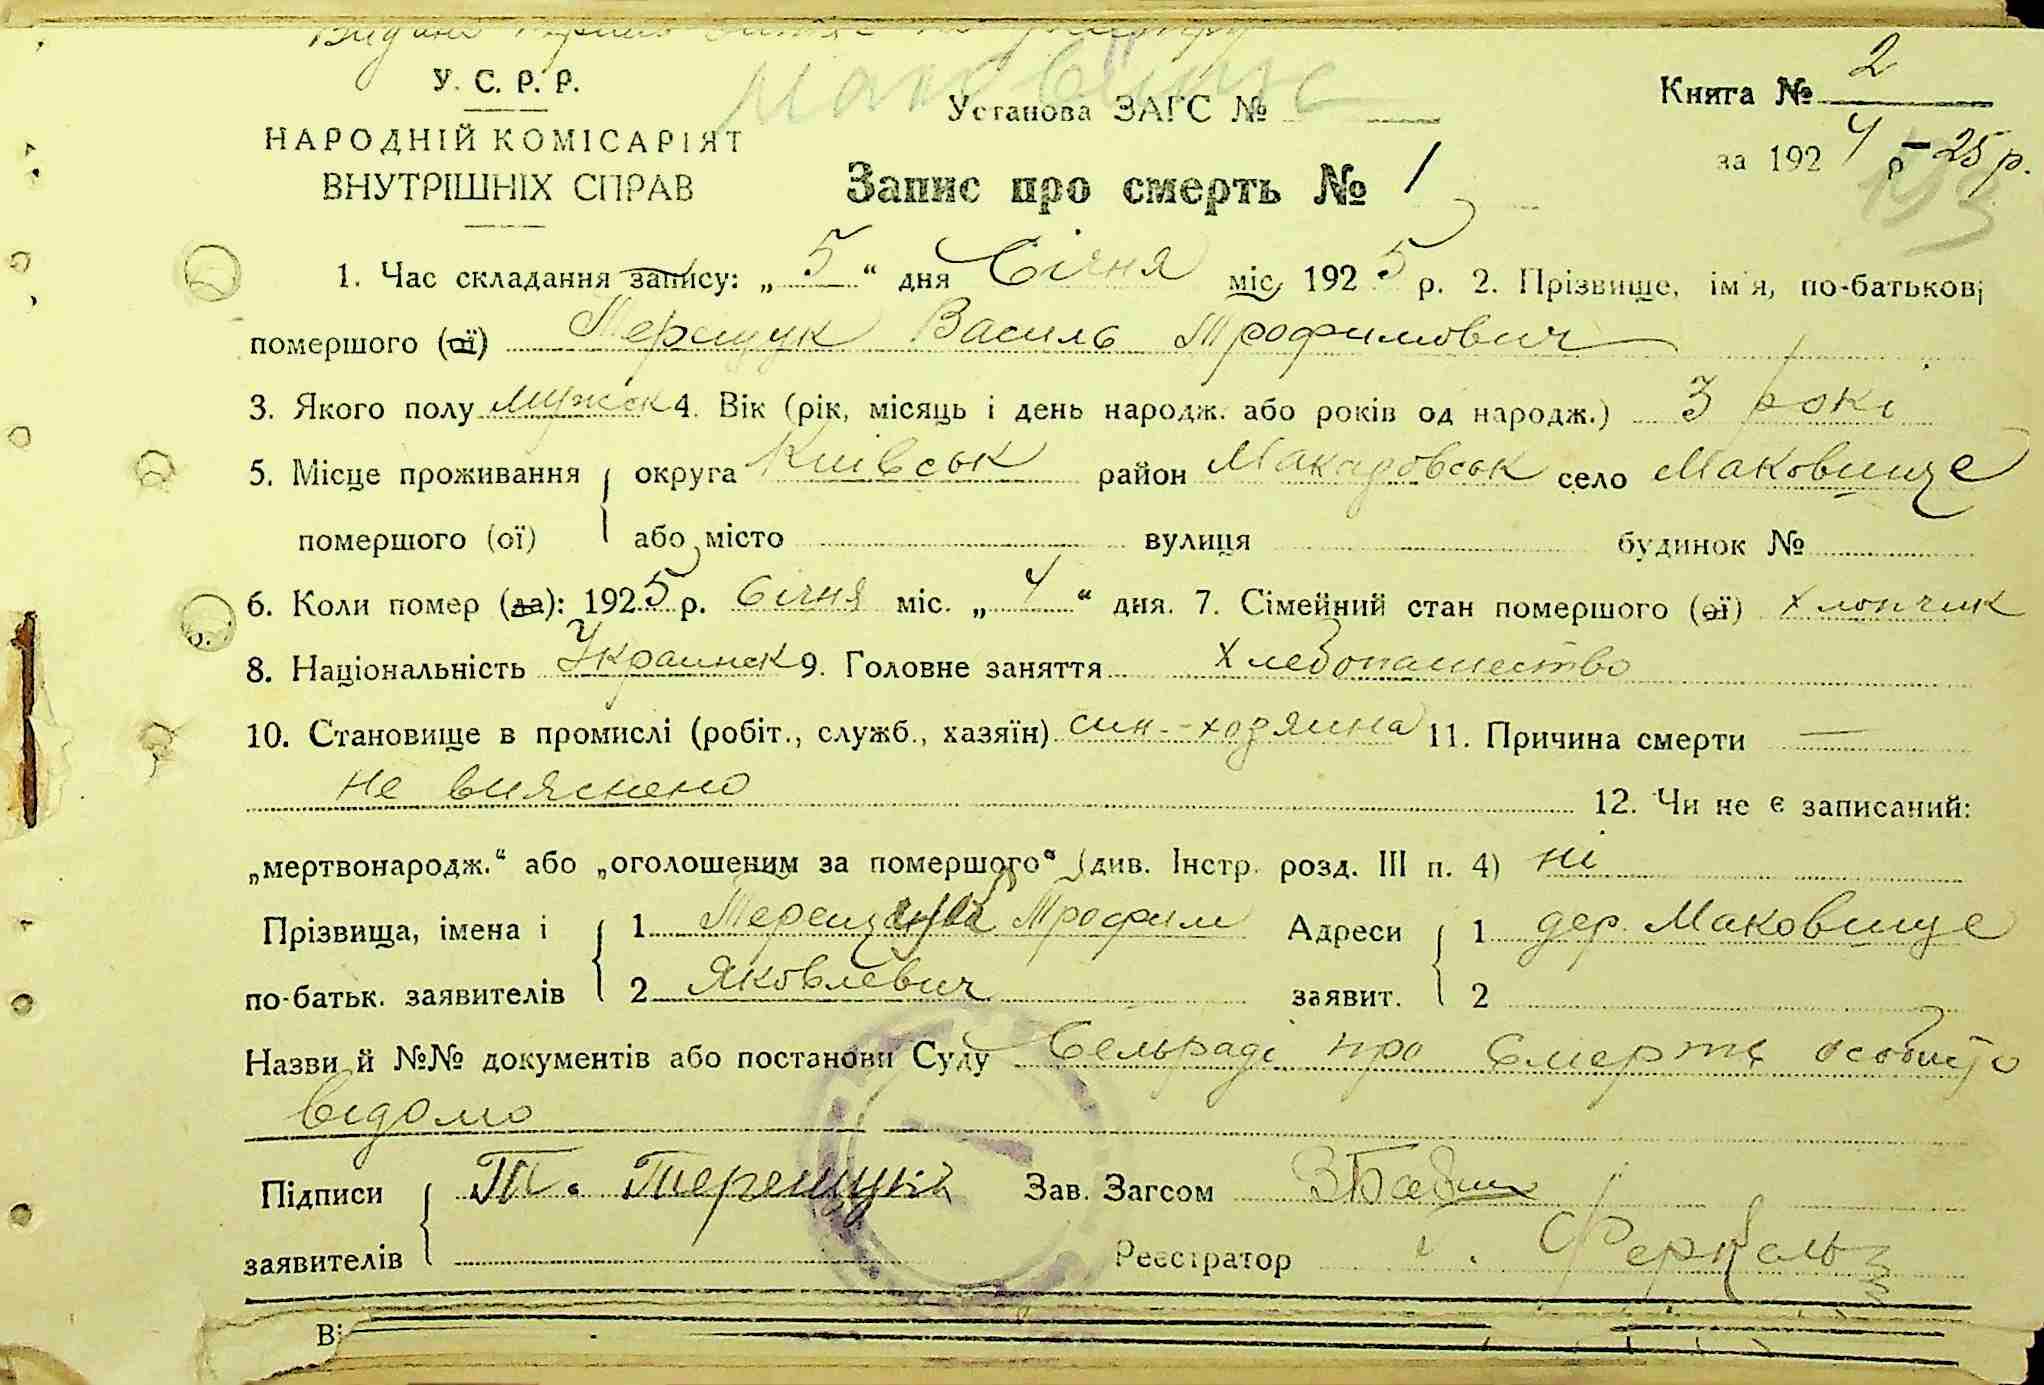 У. С. Р. Р.
НАРОДНІЙ КОМІСАРІЯТ
ВНУТРІШНІХ СПРАВ
Маковище
Установа ЗАГС №
Книга № 2
за 1924 р – 25 р.
193
Запис про смерть № 1
1. Час складання запису: „ 5 “ дня Січня міс. 1925 р. 2. Прізвище, ім'я, по-батькові
помершого (ої) Терещук Василь Трофимович
3. Якого полу мужск 4. Вік (рік, місяць і день народж. або років од народж.) 3 рокі
5. Місце проживання округа Київськ район Макаровськ село Маковище
помершого (ої) або місто вулиця будинок №
6. Коли помер (ла): 1925 р. Січня міс. „ 4 “ дня. 7. Сімейний стан помершого (ої) хлопчик
8. Національність Украинск 9. Головне заняття Хлебопашество
10. Становище в промислі (робіт., служб., хазяїн) син-хозяина 11. Причина смерти —
не вияснено 12. Чи не є записаний:
„мертвонародж.“ або „оголошеним за помершого“ (див. Інстр. розд. III п. 4) ні
Прізвища, імена і 1 Трофим Адреси 1 дер. Маковище
по-батьк. заявителів 2 Яковлевич заявит. 2
Назви й №№ документів або постанови Суду Сельраді про Смерть особисто
відомо
Підписи Т. Терещук Зав. Загсом
заявителів Реєстратор